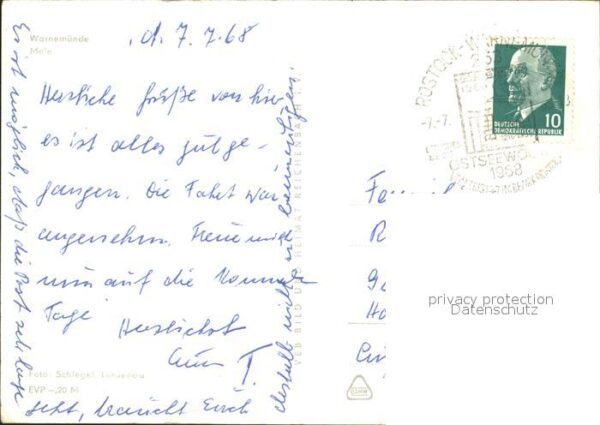 Warnemünde
Mole
,d. 7.7.68
Herzliche Grüße von hier
es ist alles gut ge-
gangen. Die Fahrt war
angenehm. Freue mich
nun auf die
Tage
Herzlichst
Es ist möglich, daß die Post sehr lange
geht, braucht Euch
deshalb nicht zu beunruhigen.
Foto: Schlegel,
EVP -,20 M
VEB BILD UND HEIMAT REICHENBACH I. V.
ROSTOCK-WARNEMÜNDE
-7.-7.
OSTSEEWOCHE
1968
10
DEUTSCHE
DEMOKRATISCHE REPUBLIK
privacy protection
Datenschutz